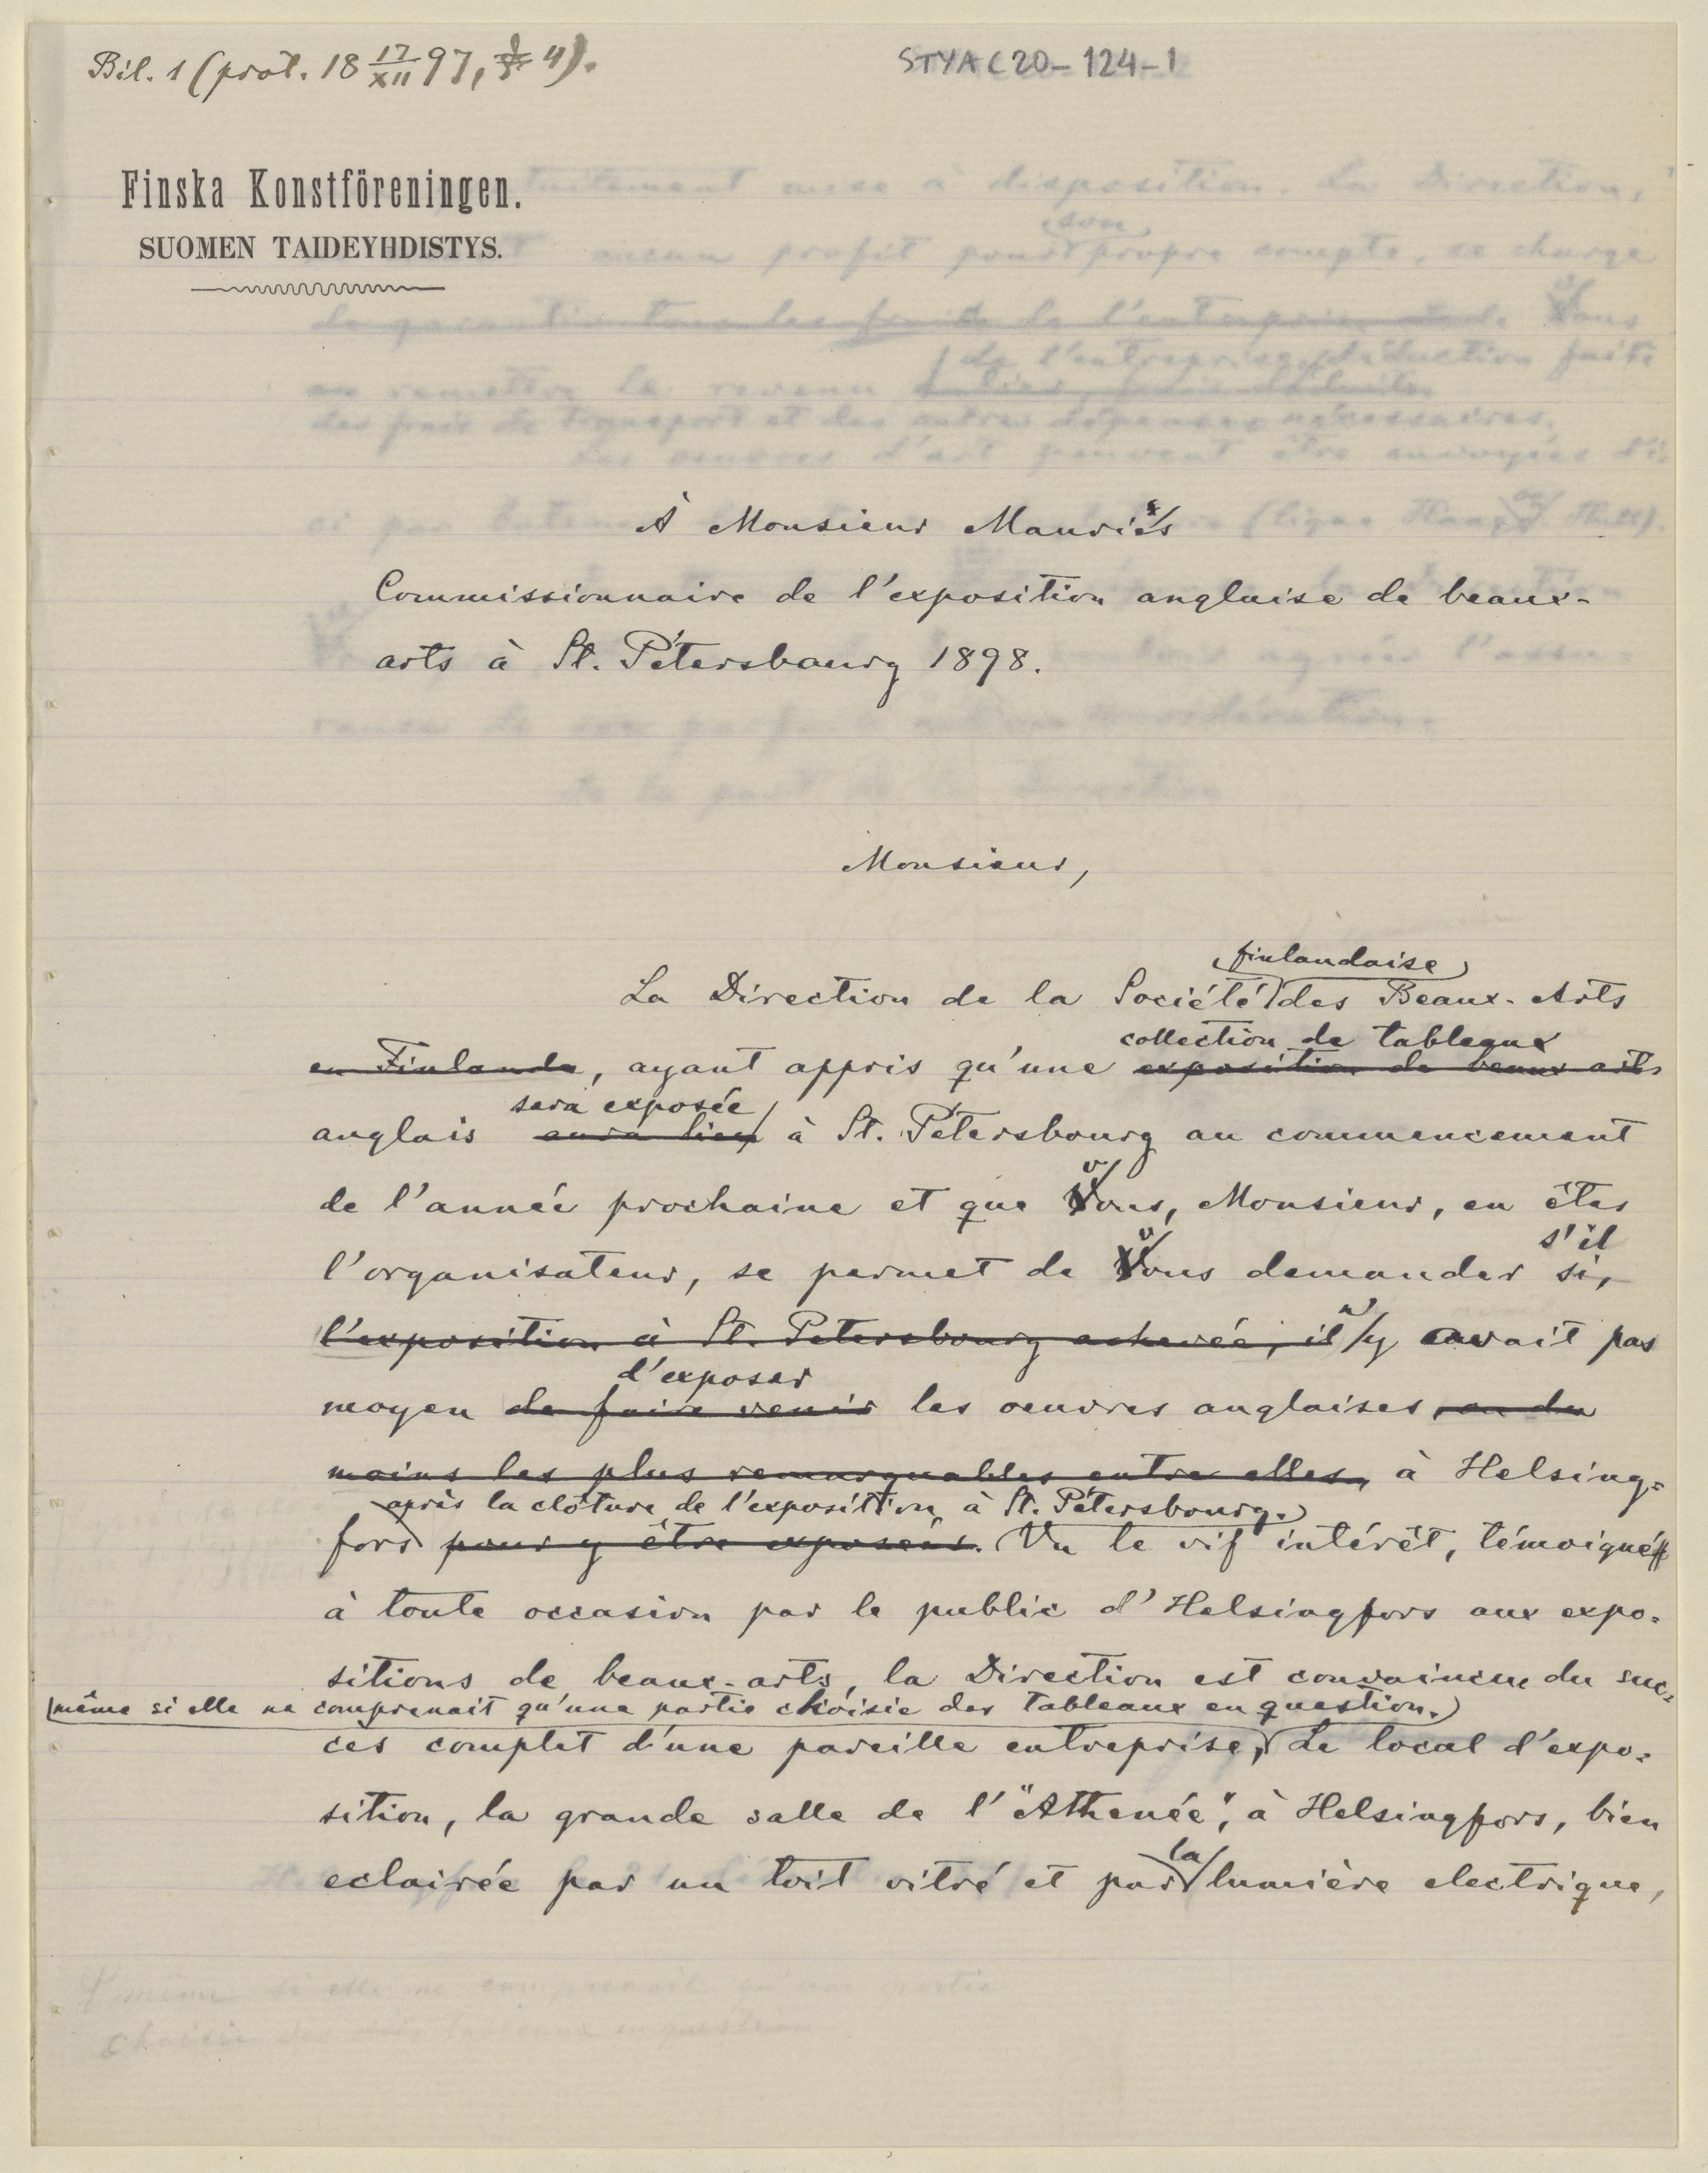 Bil. 1 (prot. 18 17/XII 97, § 4).
STYA C20-124-1
Finska Konstföreningen.
SUOMEN TAIDEYHDISTYS.
À Monsieur Mauriés
Commissionnaire de l'exposition anglaise de beaux-
arts à St. Pétersbourg 1898.
Monsieur,
finlandaise
La Direction de la Société des Beaux-Arts
collection de tableaux
en Finlande, ayant appris qu'une exposition de beaux arts
sera exposée
anglais aura lieu à St. Pétersbourg au commencement
v
de l'année prochaine et que Vous, Monsieur, en êtes
v s'il
l'organisateur, se permet de Vous demander si,
n'
l'exposition à St. Petersbourg achevée, il y avait pas
d'exposer
moyen de faire venir les oeuvres anglaises, ou du
moins les plus remarquables entre elles, à Helsing-
après la clôture de l'exposition à St. Pétersbourg.
fors pour y être exposées. Vu le vif intérêt, témoigné
à toute occasion par le public d'Helsingfors aux expo-
sitions de beaux-arts, la Direction est convaincue du suc-
même si elle ne comprenait qu'une partie choisie des tableaux en question.
cès complet d'une pareille entreprise, Le local d'expo-
sition, la grande salle de l'"Athenée", à Helsingfors, bien
la
eclairée par un toit vitré et par lumière electrique,